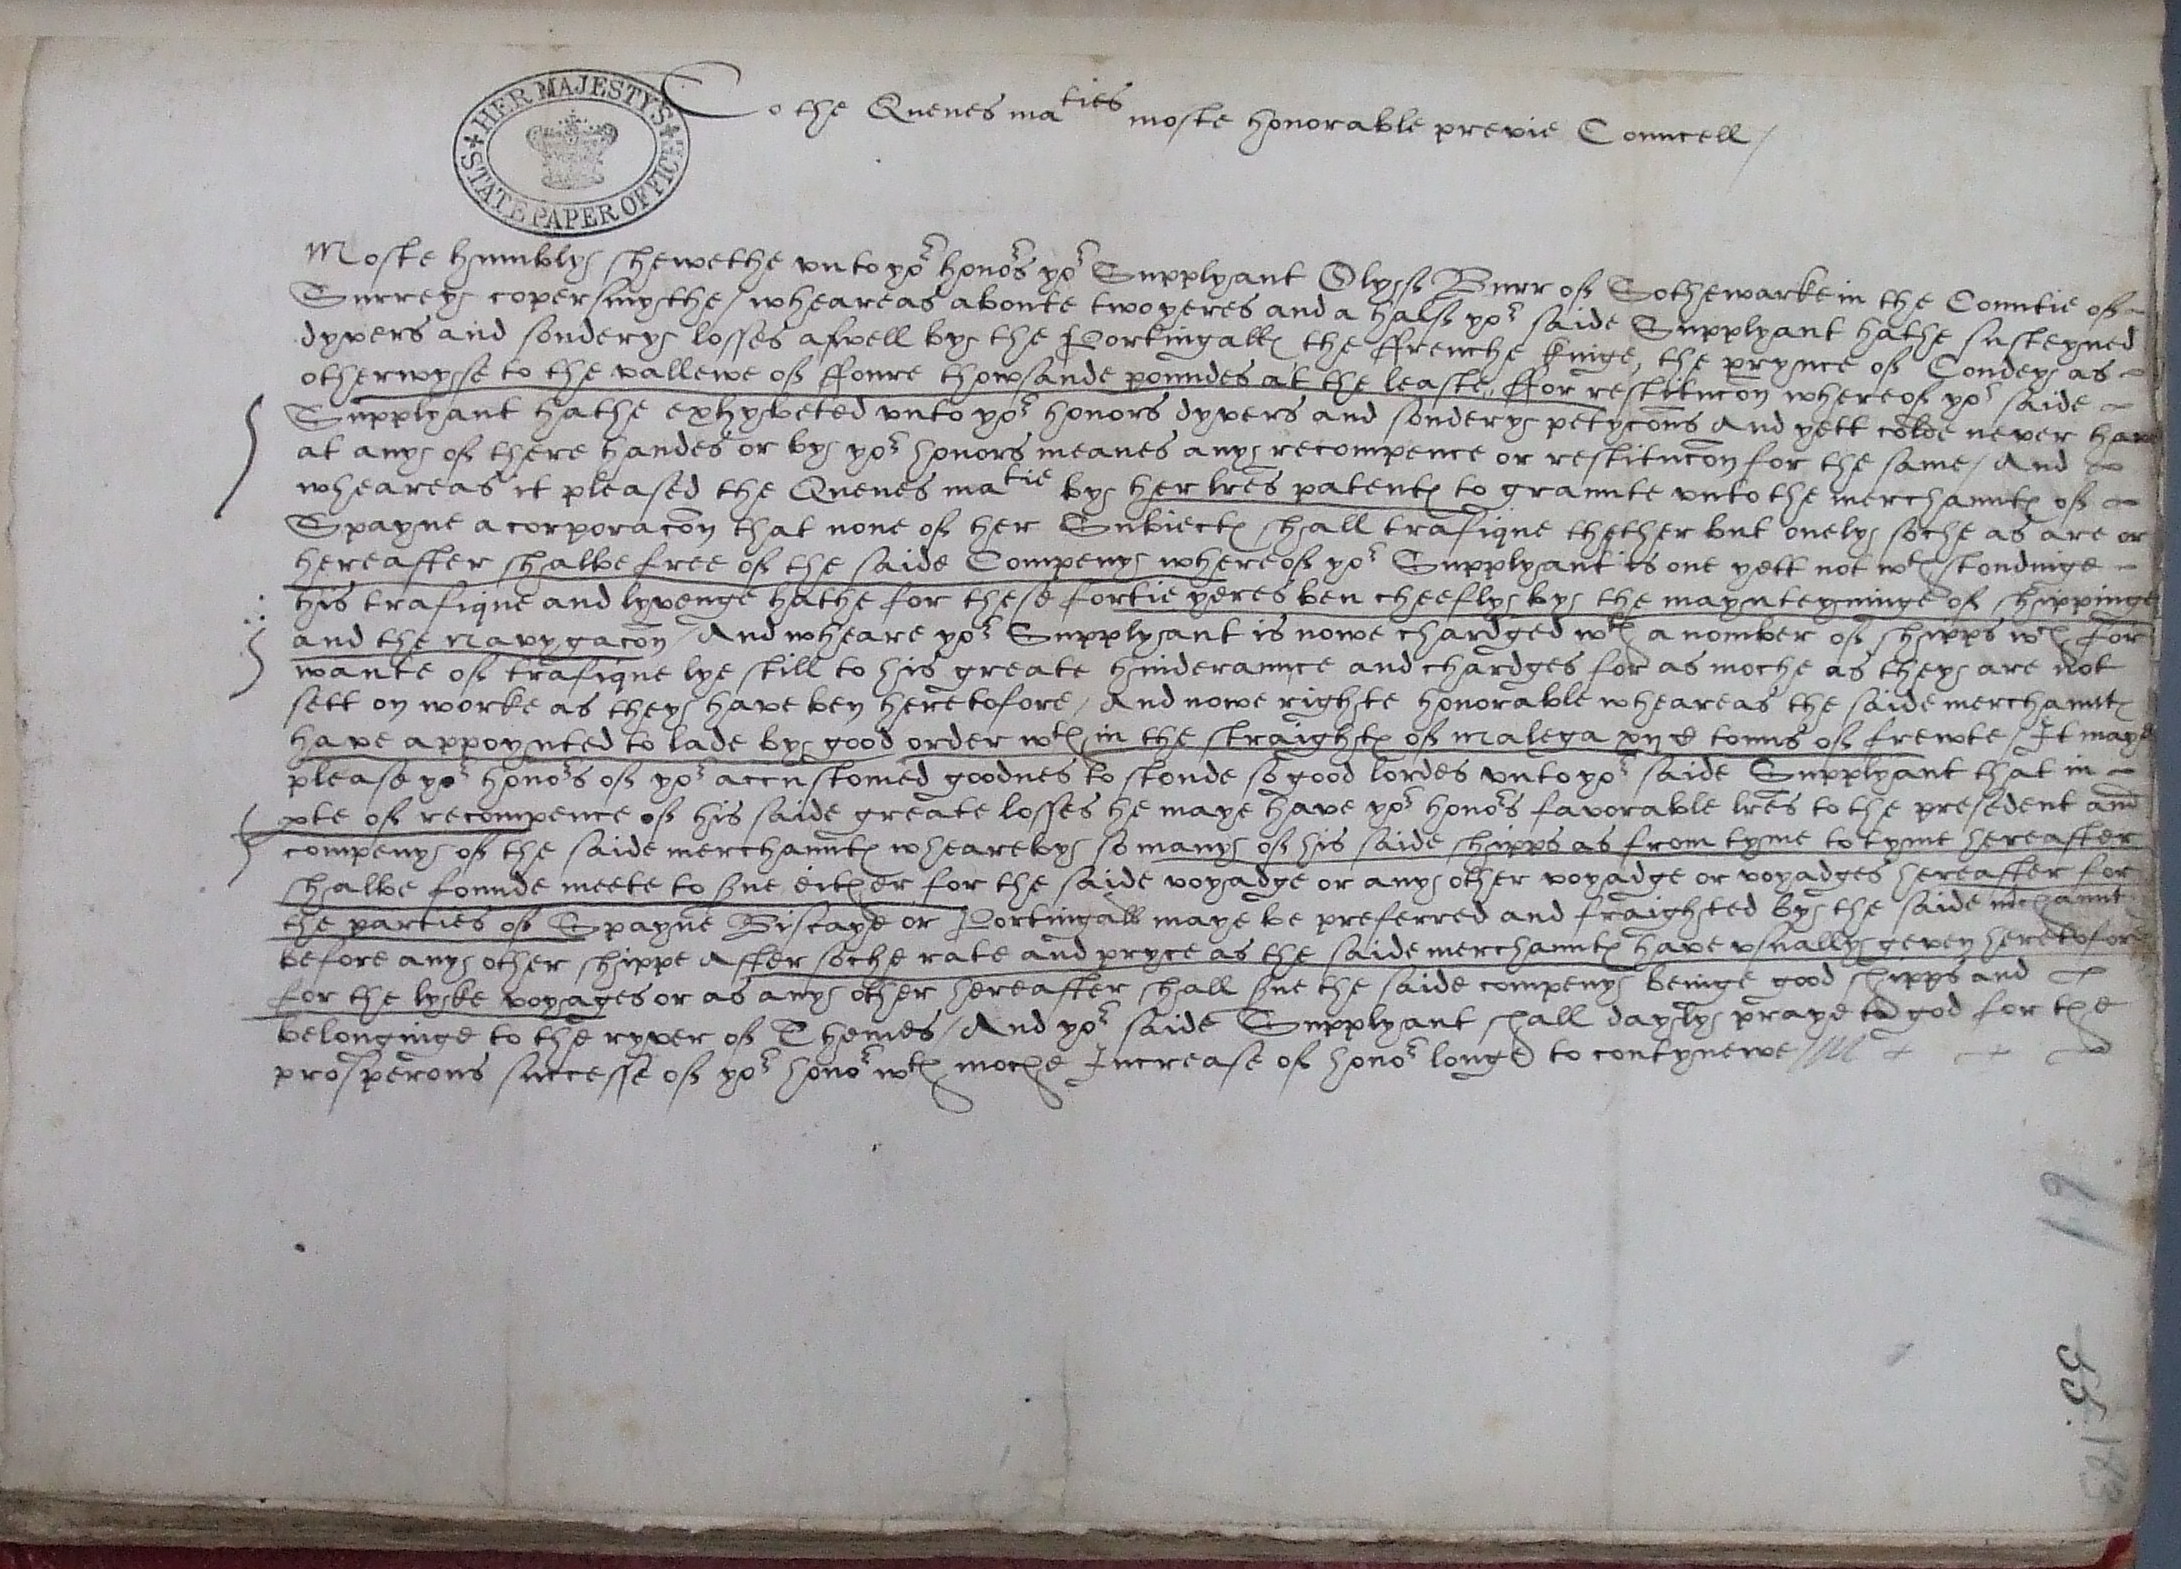 HER MAJESTY'S STATE PAPER OFFICE
To the Quenes maties moste honorable previe Councell
Moste humbly shewethe unto yor honors yor Supplyant Olyff Burr of Sothewarke in the Countie of
Surrey copersmythe / wheareas aboute two yeres and a half yor saide Supplyant hathe susteyned
dyvers and sondery losses aswell by the Portingalles the ffrenche kinge, the prynce of Condey as
otherwysse to the vallewe of ffoure thowsande poundes at the leaste, ffor restitucon whereof yor saide
Supplyant hathe exhybeted unto yor honors dyvers and sondery petycons And yett colde never have
at any of there handes or by yor honors meanes any recompence or restitucon for the same / And
wheareas it pleased the Quenes matie by her lres patentes to graunte unto the merchauntes of
Spayne a corporacon that none of her Subiectes shall trafique thether but onely soche as are or
hereafter shalbe free of the saide Compeny whereof yor Supplyant is one yett not wthstondinge
his trafique and lyvenge hathe for these fortie yeres ben cheefly by the maynteyninge of shippinge
and the navygacon / And wheare yor Supplyant is nowe chardged wth a nomber of shipps wch for
wante of trafique lye still to his greate hinderaunce and chardges for as moche as they are not
sett on worke as they have ben heretofore / And nowe righte honorable wheareas the saide merchauntes
have appoynted to lade by good order wthin the straightes of malega tonns of frewte / It maye
please yor honors of yor accustomed goodnes to stonde so good lordes unto yor saide Supplyant that in
pte of recompence of his saide greate losses he maye have yor honors favorable lres to the presedent and
compeny of the saide merchauntes wheareby so many of his saide shipps as from tyme to tyme hereafter
shalbe founde meete to sue either for the saide voyadge or any other voyadge or voyadges hereafter for
the parties of Spayne Biscaye or Portingall maye be preferred and fraighted by the saide mchaunt
before any other shippe After soche rate and pryce as the saide merchauntes have usually geven heretofore
for the lyke voyages or as any other hereafter shall sue the saide compeny beinge good shipps and
belonginge to the ryver of Themes / And yor saide Supplyant shall dayly praye to god for the
prosperous successe of yor honor wth moche Increase of honor longe to contynewe
19
55
183